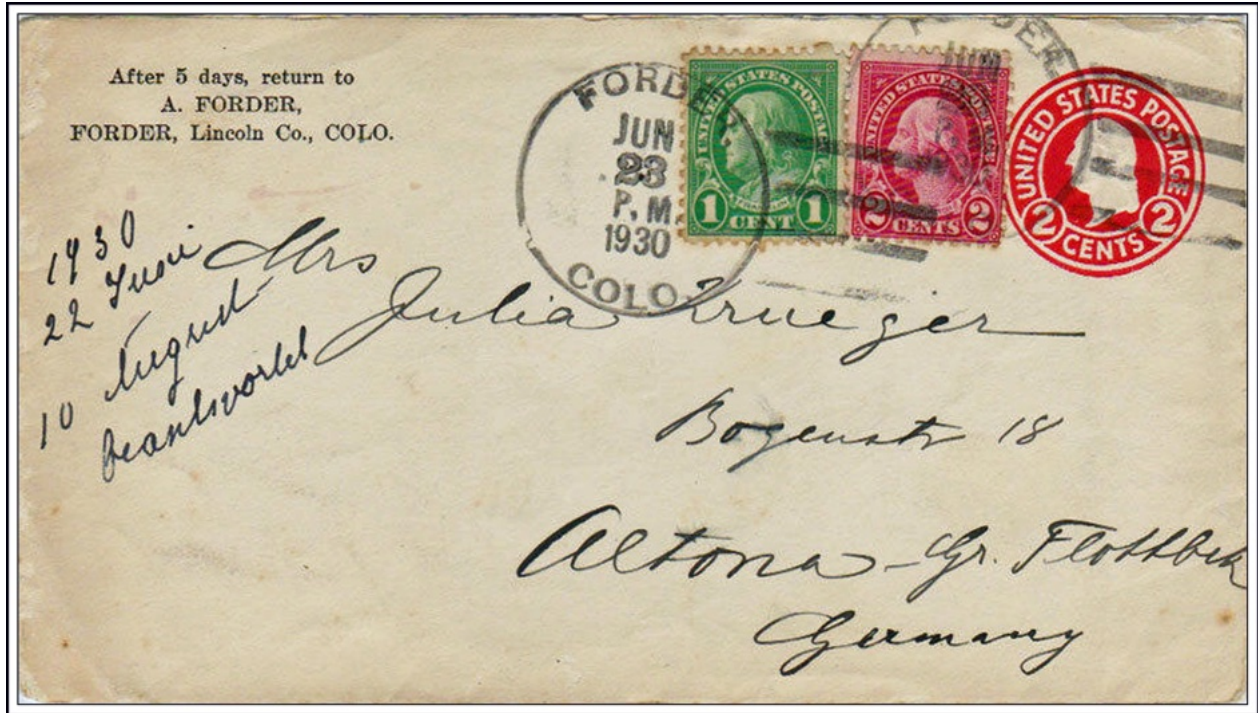 After 5 days, return to
A. FORDER,
FORDER, Lincoln Co., COLO.
FORDER
JUN
23
P.M.
1930
COLO.
UNITED STATES POSTAGE
1 CENT 1
UNITED STATES POSTAGE
2 CENTS 2
FORDER
JUN
UNITED STATES POSTAGE
2 CENTS 2
1930
22 Juni
10 August
beantwortet
Mrs
Julia Krueger
Bogenstr 18
Altona - Gr. Flottbek
Germany